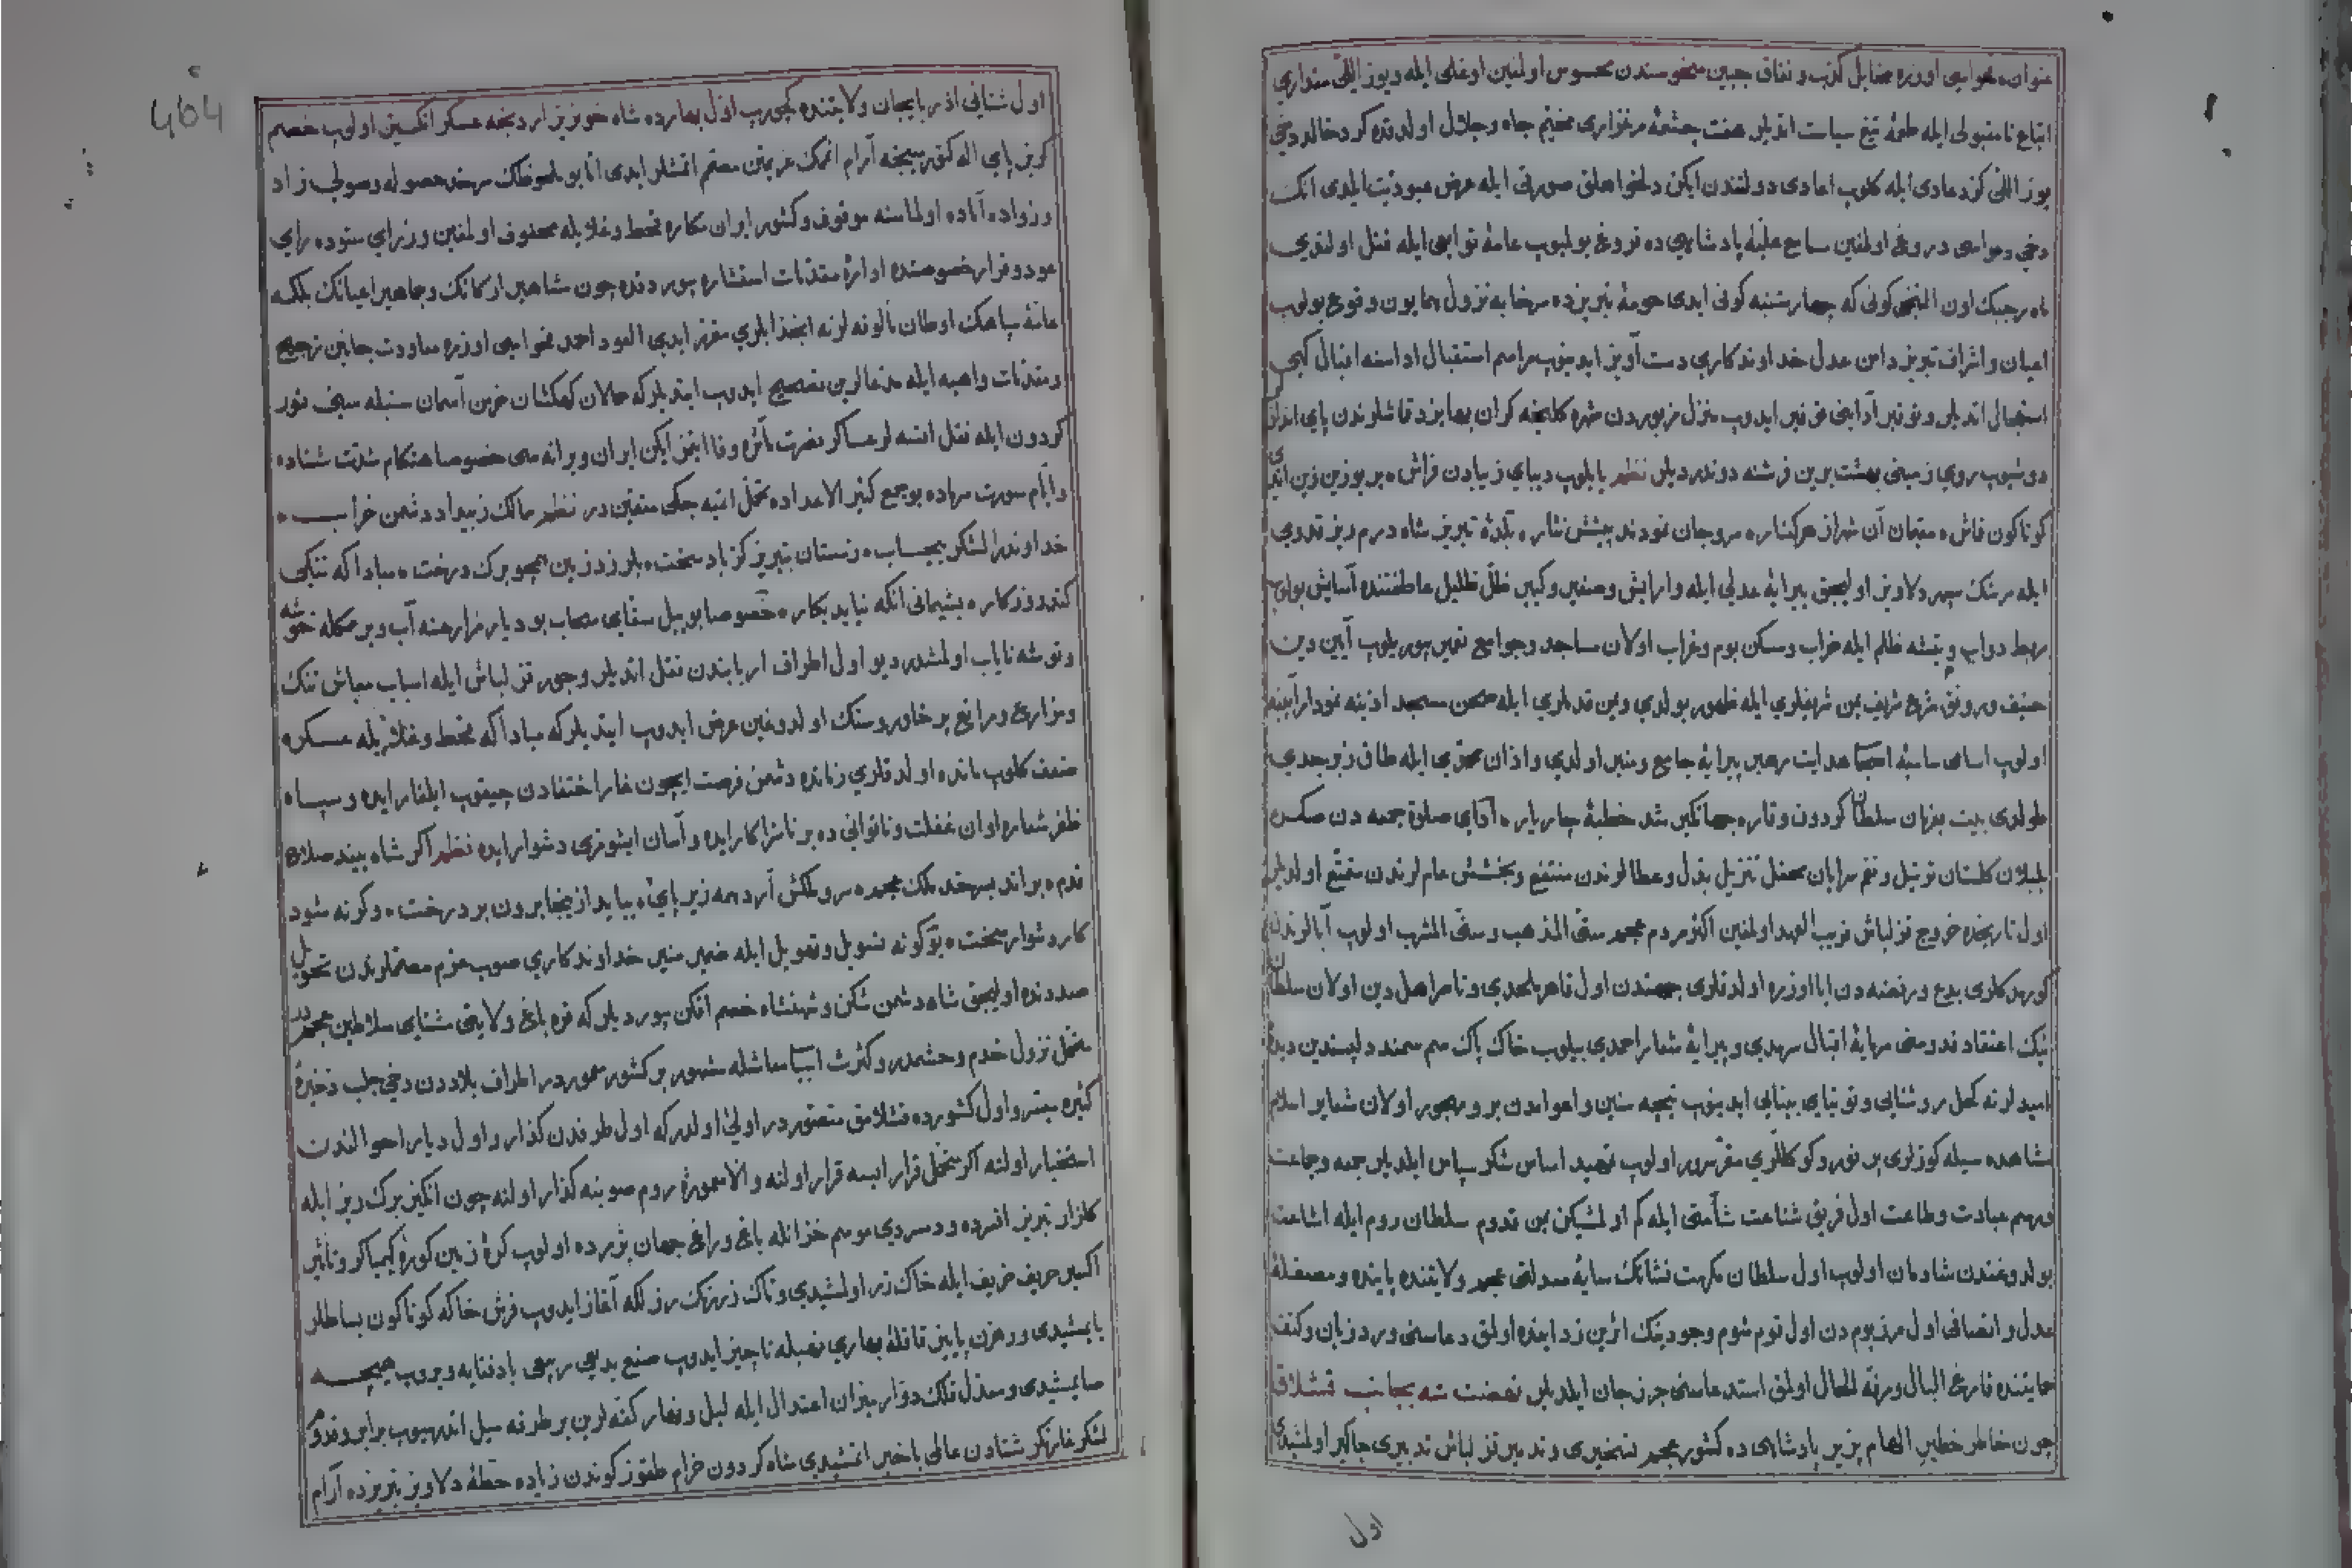 عنوان فحواسی اوزره مخایل کذب و نفاق جبین منحوسندن محسوس اولمغین اوغلی ایله و یوز اللی مقداری
اتباع نامقبولی ایله طعمهٔ تیغ سیاست اتدیلر هفت چشمهٔ مرغزاری مخیم جاه و جلال اولدقده کردخالد دخی
یوز اللی کرد عادی ایله کلوب اعادی دولتندن ایکن دلخواهلق صورتی ایله عرض عبودیت ایلدی انک
دخی دعواسی دروغ اولمغین سامع علیهٔ پادشاهی ده فروغ بولمیوب عامهٔ توابعی ایله قتل اولندی
ماه رجبک اون التنجی کونی که چهارشنبه کونی ایدی حومهٔ تبریزده سرخابه نزول همایون وقوع بولوب
اعیان و اشراف تبریز دامن عدل خداوندکاری دست آویز ایدینوب مراسم استقبال اداسنه اقبال کبی
استعجال اتدیلر و توقیر آدابنی توفیر ایدوب منزل مزبوردن شهره کلنجه کران بها بزد قماشلرندن پای انداز
دوشیوب روی زمینی بهشت برین فرشنه دوندردیلر نظم یابلوب دیبای زیبادن فراش ه بر یوزین زین اتدی
کوناکون قماش ه مقیمان آن شهر از هر کناره سر و جان نمودند پیشش نثاره بلدهٔ تبریز شاه درم ریز قدومی
ایله رشک سپهر دلاویز اولیجق پیرایهٔ عدلی ایله وارایش و صغیر و کبیر ظل ظلیل عاطفتنده آسایش بولوب
مربط دواب و تیشه ظلم ایله خراب و مسکن بوم و غراب اولان مساجد و جوامع تعمیر بیوریلوب آیین دین
حنیف و رونق شرع شریف یمن تشریفلری ایله ظهور بولدی و یمن قدملری ایله صحن مسجد اذینه نمودار آیینه
اولوب اسامی سامیهٔ اصحاب هدایت رهبر پیرایهٔ جامع و منبر اولدی و اذان محمدی ایله طاق زبرجدی
طولدی بیت بفرمان سلطان کردون وقاره جهانکیر شد خطبهٔ چار یاره ادای صلوة جمعه دن صکره
بلبلان کلستان ترتیل و نغم سرایان محفل تنزیل بذل و عطالرندن منتفع و بخشش عاملرندن متمتع اولدیلر
اول تاریخده خروج قزلباش قریب العهد اولمغین اکثر مردم عجم سنی المذهب و سنی المشرب اولوب آبالرندن
کوردکلری بدع و رفضه دن ابا اوزره اولدقلری جهتدن اول قاهر ملحدی و ناصر اهل دین اولان سلطان
نیک اعتقاد قدومنی سرمایهٔ اقبال سرمدی و پیرایهٔ شعار احمدی بیلوب خاک پاک سم سمند دلپسندین دیدهٔ
امیدلرنه کحل روشنایی و توتیای بینایی ایدینوب نیجه سنین و اعوامدن برو مهجور اولان شعایر اسلام
مشاهده سیله کوزلری پر نور و کوکللری مقر سرور اولوب تمهید اساس شکر سپاس ایلدیلر جمعه و جماعت
ورسم عبادت و طاعت اول فریق شناعت شآمتی ایله کم اولمشیکن یمن قدوم سلطان روم ایله اشاعت
بولدوغندن شادمان اولوب اول سلطان مکرمت نشانک سایهٔ معدلتی عجم ولایتنده پاینده و مصقلهٔ
عدل و انصافی اول مرز بوم دن اول قوم شوم وجودینک اثرین زداینده اولمق دعاسنی ورد زبان و کنف
حمایتنده فارغ البال و مرفه الحال اولمق استدعاسنی حرز جان ایلدیلر نهضت شه بجانب قشلاق
چون خاطر خطیر الهام پزیر پادشاهی ده کشور عجم تسخیری و تدمیر قزلباش تدبیری جاکیر اولمشیدی
اول
464
اول شتایی اذربایجان ولایتنده کچورب اول بهارده شاه خونریز اردنجه عسکر انکیز اولوب خصم
کریز پایی اله کتورمیجه آرام اتمک عزیمتن مصمم اتمشلر ایدی اما بو ملحوظک سرحد حصوله وصولی زاد
وزواده آماده اولماسنه موقوف و کشور ایران مکاره قحط و غلایله محفوف اولمغین وزرای ستوده رای
عود و قرار خصوصنده ادارهٔ مقدمات استشاره بیوردقده چون مشاهیر ارکانک و جماهیر اعیانک بلکه
عامهٔ سپاهک اوطان مألوفه لرنه انجذابلری مقرر ایدی العود احمد فحواسی اوزره معاودت جانبن ترجیح
و مقدمات واهیه ایله مدعالرین تصحیح ایدوب ایتدیلر که حالا کهکشان خرمن آسمان سنبله سیخ ثور
کردون ایله نقل اتسه لر عساکر نصرت مآثره وفا ایتمز ایکن ایران ویرانه سی خصوصا هنکام شدت شتاده
و ایام سورت سرماده بو جمع کثیر الاعداده تحمل اتیه جکی متیقین در نظم ممالک ز بیداد دشمن خراب ه
خداوند را لشکر بیحساب ه زمستان تبریز کز باد سخت ه بلرزد زمین همچو برک درخت ه مبادا که تنکی
کند روزکاره پشیمانی انکه نیاید بکاره خصوصا بو ییل سقای سحاب بو دیار مزارعنه آب ویرمکله خوشه
و توشه نایاب اولمشدر دیو اول اطراف اربابندن نقل اتدیلر و جور قزلباش ایله اسباب معاش تنک
و مزارع و مراتع پر خاور و سنک اولدوغین عرض ایدوب ایتدیلر که مبادا که قحط و غلا ایله عسکره
ضعف کلوب مانده اولدقلری زمانده دشمن فرصت ایچون غار اختفادن چیقوب ایلغار ایده و سپاه
ظفر شعاره اوان غفلت و ناتوانی ده بر ناسزا کار ایده و آسان ایشوفزی دشوار ایده نظم اکر شاه بیند صلاح
قدم ه براند بسرحد ملک عجم ه سر و ملکش آرد همه زیر پای ه بباید از اینجا برون برد رخت ه وکرنه شود
کار دشوار سخت ه بو کونه تسویل و تهویل ایله ضمیر منیر خداوندکاری صوب عزم مصمملرندن تحویل
صددنده اولیجق شاه دشمن شکن و شهنشاه خصم افکن بیوردیلر که قره باغ ولایتی مشتای سلاطین عجمدر
متحمل نزول خدم و حشمدر و کثرت اسباب معاشله مشهور بر کشور معموردر اطراف بلاددن دخی جلب ذخیرهٔ
کثیره میسر و اول کشورده قشلامق متصوردر اولی اولدر که اول طرفدن کذار و اول دیار احوالندن
استخبار اولنه اکر متحمل قرار ایسه قرار اولنه و الا معمورهٔ روم صوبنه کذار اولنه چون انکیز برک ریز ایله
کلزار تبریز افسرده و دمسردی موسم خزانله باغ و راغ جهان پژمرده اولوب کرهٔ زمین کورهٔ کیمیاکر و تأثیر
اکسیر حریف خریف ایله خاک زر اولمشیدی و تاک زرنک رزلکه آغاز ایدوب فرش خاکه کوناکون بساطلر
یایمشیدی و رهزن پاییز قافلهٔ بهاری نهبله ناچیز ایدوب صنع بدیع ربیعی باد فنایه ویروب هیچه
صایمشیدی و معدل فلک دوار میزان اعتدال ایله لیل و نهار کفه لرین بر طرفه میل اتدرمیوب برابر و قدو
لشکر غارتکر شتادن عالی باخبر اتمشیدی شاه کردون خرام طقوز کوندن زیاده خطهٔ دلاویز تبریزده آرام